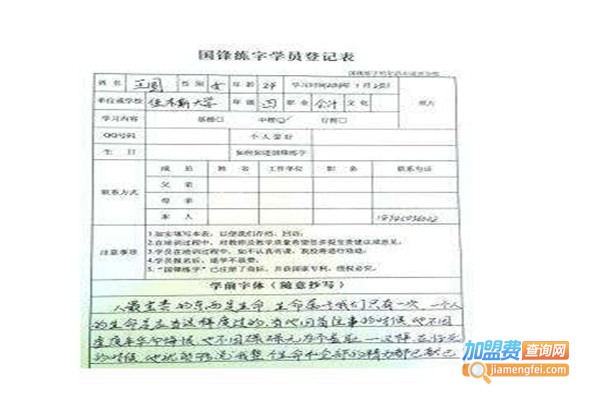 国锋练字学员登记表
姓名 王 性别 女 年龄 学习时间 1月
单位或学校 佳木斯大学 年级 四 职业 会计 文化 照片
学习内容 楷□ 中楷 行楷□
QQ号码 个人爱好
生日 如何知道国锋练字
联系方式 成员 姓名 工作单位 职务 联系电话
父亲
母亲
本人
注意事项
1.如实填写本表,以便我们存档、回访;
2.在培训过程中,对教师及教学质量希望您多提宝贵建议或意见;
3.学员在培训过程中,如不认真听课,我校将进行劝退;
4.学员报名后,退学不退费。
5.“国锋练字”已注册了商标,并获国家专利,侵权必究。
学前字体(随意抄写)
人最宝贵的东西是生命 生命属于我们只有一次 一个人
的生命是应当这样度过的 当他回首往事的时候 他不因
虚度年华而悔恨 他不因碌碌无为而羞耻 一这样在临死
的时候 他就能够说 我整个生命和全部的精力都已献已
加盟费查询网
jiamengfei.com